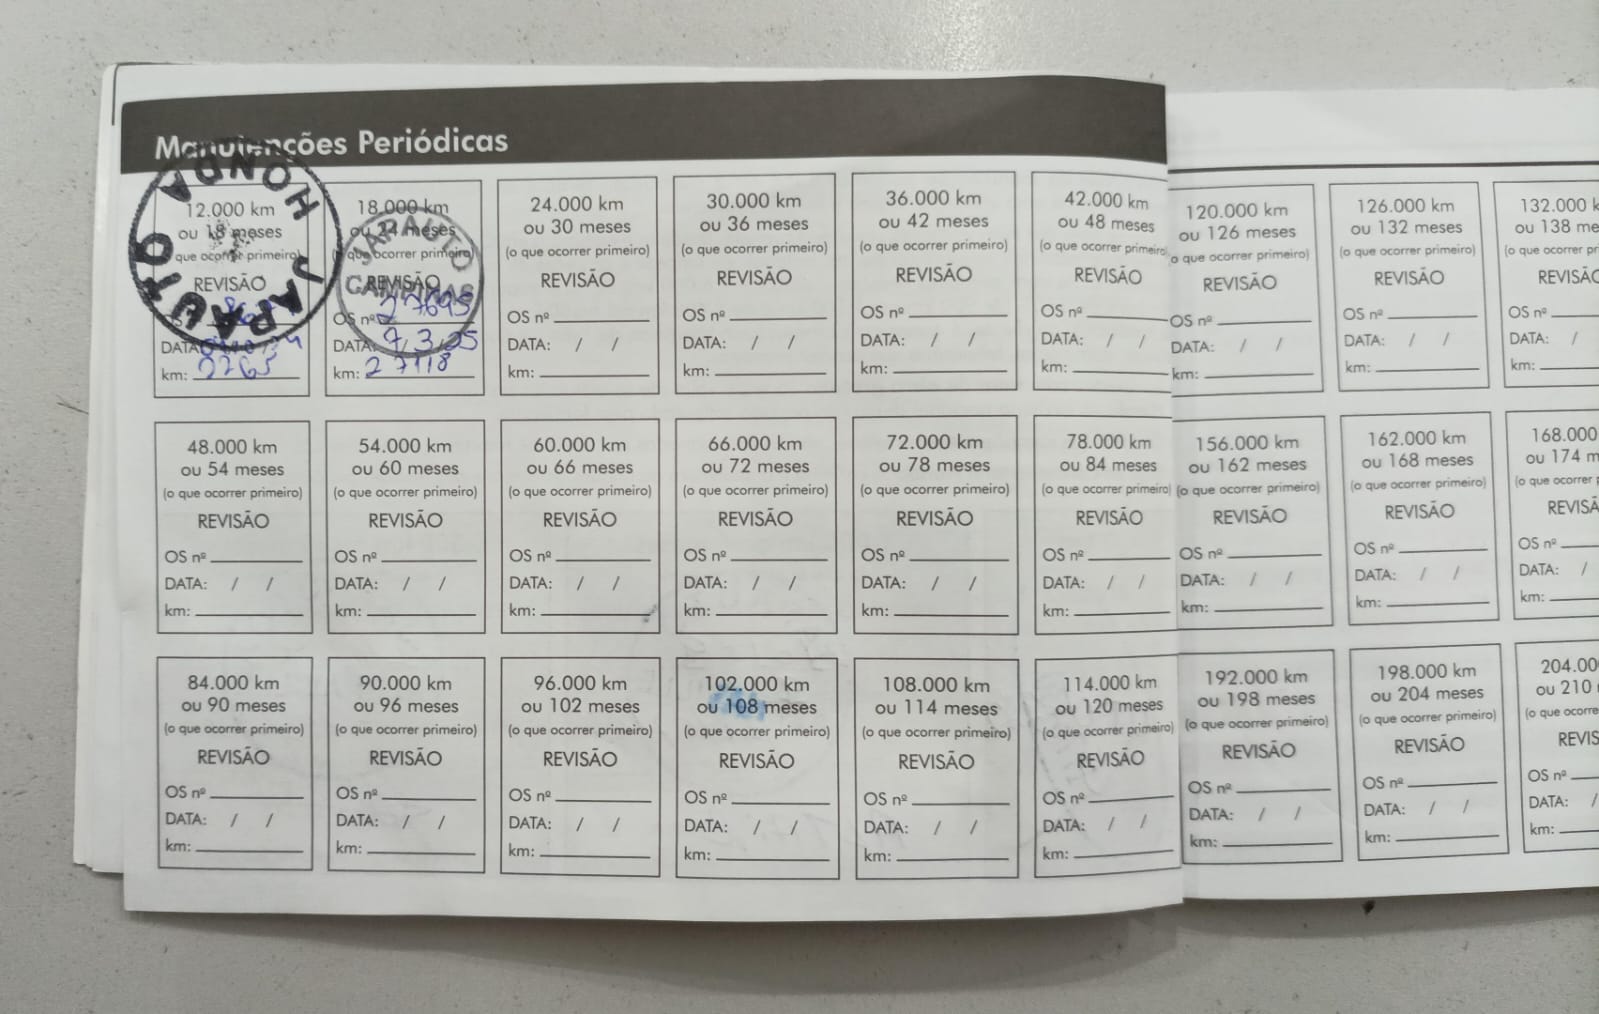 Manutenções Periódicas
HONDA JAPAUTO
12.000 km
ou 18 meses
que ocorrer primeiro)
REVISÃO
DATA
km: 2765
JAPAUTO
CAMPINAS
18.000 km
ou 24 meses
(o que ocorrer primeiro)
REVISÃO
OS nº 27695
DATA: 7/3/25
km: 27118
24.000 km
ou 30 meses
(o que ocorrer primeiro)
REVISÃO
OS nº
DATA: / /
km:
30.000 km
ou 36 meses
(o que ocorrer primeiro)
REVISÃO
OS nº
DATA: / /
km:
36.000 km
ou 42 meses
(o que ocorrer primeiro)
REVISÃO
OS nº
DATA: / /
km:
42.000 km
ou 48 meses
(o que ocorrer primeiro
REVISÃO
OS nº
DATA: / /
km:
120.000 km
ou 126 meses
o que ocorrer primeiro)
REVISÃO
OS nº
DATA: / /
km:
126.000 km
ou 132 meses
(o que ocorrer primeiro)
REVISÃO
OS nº
DATA: / /
km:
132.000 k
ou 138 me
(o que ocorrer pr
REVISÃO
OS nº
DATA: /
km:
48.000 km
ou 54 meses
(o que ocorrer primeiro)
REVISÃO
OS nº
DATA: / /
km:
54.000 km
ou 60 meses
(o que ocorrer primeiro)
REVISÃO
OS nº
DATA: / /
km:
60.000 km
ou 66 meses
(o que ocorrer primeiro)
REVISÃO
OS nº
DATA: / /
km:
66.000 km
ou 72 meses
(o que ocorrer primeiro)
REVISÃO
OS nº
DATA: / /
km:
72.000 km
ou 78 meses
(o que ocorrer primeiro)
REVISÃO
OS nº
DATA: / /
km:
78.000 km
ou 84 meses
(o que ocorrer primeiro)
REVISÃO
OS nº
DATA: / /
km:
156.000 km
ou 162 meses
(o que ocorrer primeiro)
REVISÃO
OS nº
DATA: / /
km:
162.000 km
ou 168 meses
(o que ocorrer primeiro)
REVISÃO
OS nº
DATA: / /
km:
168.000
ou 174 m
(o que ocorrer p
REVISÃ
OS nº
DATA: /
km:
84.000 km
ou 90 meses
(o que ocorrer primeiro)
REVISÃO
OS nº
DATA: / /
km:
90.000 km
ou 96 meses
(o que ocorrer primeiro)
REVISÃO
OS nº
DATA: / /
km:
96.000 km
ou 102 meses
(o que ocorrer primeiro)
REVISÃO
OS nº
DATA: / /
km:
102.000 km
ou 108 meses
(o que ocorrer primeiro)
REVISÃO
OS nº
DATA: / /
km:
108.000 km
ou 114 meses
(o que ocorrer primeiro)
REVISÃO
OS nº
DATA: / /
km:
114.000 km
ou 120 meses
(o que ocorrer primeiro)
REVISÃO
OS nº
DATA: / /
km:
192.000 km
ou 198 meses
(o que ocorrer primeiro)
REVISÃO
OS nº
DATA: / /
km:
198.000 km
ou 204 meses
(o que ocorrer primeiro)
REVISÃO
OS nº
DATA: / /
km:
204.00
ou 210
(o que ocorre
REVIS
OS nº
DATA: /
km: